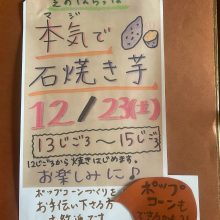 マジ
本気で
石焼き芋
12/23(土)
13じごろ〜15じごろ
12じごろから焼きはじめます。
お楽しみに♪
ポップコーンづくりを
お手伝い下さる方
ポップ
コーンも